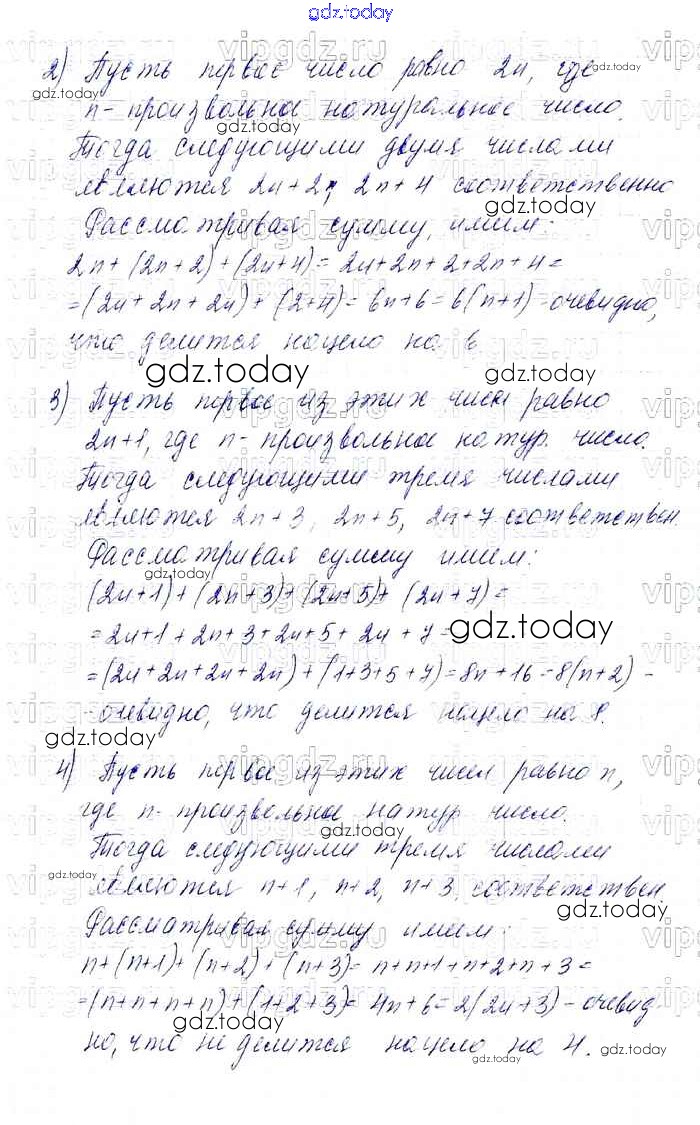 gdz.today
2) Пусть первое число равно 2n, где
gdz.today
n - произвольное натуральное число.
gdz.today
Тогда следующими двумя числами
являются 2n+2, 2n+4 соответственно
gdz.today
Рассматривая сумму, имеем:
2n+(2n+2)+(2n+4)=2n+2n+2+2n+4=
=(2n+2n+2n)+(2+4)=6n+6=6(n+1) - очевидно,
что делится нацело на 6
gdz.today gdz.today
3) Пусть первое из этих чисел равно
2n+1, где n - произвольное натур. число.
Тогда следующими тремя числами
являются 2n+3, 2n+5, 2n+7 соответствен.
Рассматривая сумму имеем:
gdz.today
(2n+1)+(2n+3)+(2n+5)+(2n+7)=
=2n+1+2n+3+2n+5+2n+7=
gdz.today
=(2n+2n+2n+2n)+(1+3+5+7)=8n+16=8(n+2) -
- очевидно, что делится нацело на 8.
gdz.today
4) Пусть первое из этих чисел равно n,
где n - произвольное натур. число.
gdz.today
Тогда следующими тремя числами
gdz.today
являются n+1, n+2, n+3 соответствен.
gdz.today
Рассматривая сумму имеем:
n+(n+1)+(n+2)+(n+3)=n+n+1+n+2+n+3=
=(n+n+n+n)+(1+2+3)=4n+6=2(2n+3) - очевид-
gdz.today
но, что не делится нацело на 4.
gdz.today gdz.today